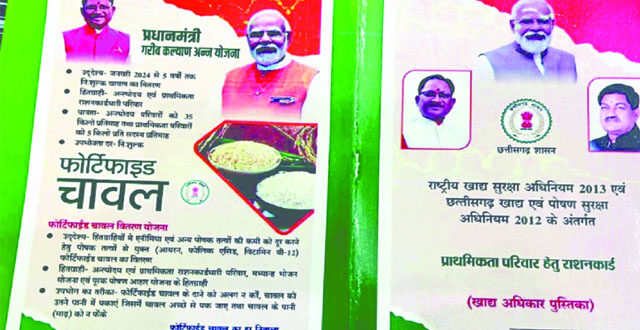 प्रधानमंत्री
गरीब कल्याण अन्न योजना
• उद्देश्य- जनवरी 2024 से 5 वर्षों तक
नि:शुल्क चावल का वितरण
• हितग्राही- अन्त्योदय एवं प्राथमिकता
राशनकार्डधारी परिवार
• पात्रता- अन्त्योदय परिवारों को 35
किलो प्रतिमाह तथा प्राथमिकता परिवारों
को 5 किलो प्रति सदस्य प्रतिमाह
• उपभोक्ता दर- नि:शुल्क
फोर्टिफाइड
चावल
फोर्टिफाईड चावल वितरण योजना
• उद्देश्य- हितग्राहियों में एनीमिया एवं अन्य पोषक तत्वों की कमी को दूर करने
हेतु पोषक तत्वों से युक्त (आयरन, फोलिक एसिड, विटामिन बी-12)
फोर्टिफाईड चावल का वितरण
• हितग्राही- अन्त्योदय एवं प्राथमिकता राशनकार्डधारी परिवार, मध्यान्ह भोजन
योजना एवं पूरक पोषण आहार योजना के हितग्राही
• उपयोग का तरीका- फोर्टिफाईड चावल के दाने को अलग न करें, चावल को
उतने पानी में पकाएं जिसमें चावल अच्छे से पक जाए तथा चावल के पानी
(माड़) को न फेंके
फोर्टिफाईड चावल का दर
छत्तीसगढ़ शासन
राष्ट्रीय खाद्य सुरक्षा अधिनियम 2013 एवं
छत्तीसगढ़ खाद्य एवं पोषण सुरक्षा
अधिनियम 2012 के अंतर्गत
प्राथमिकता परिवार हेतु राशनकार्ड
(खाद्य अधिकार पुस्तिका)